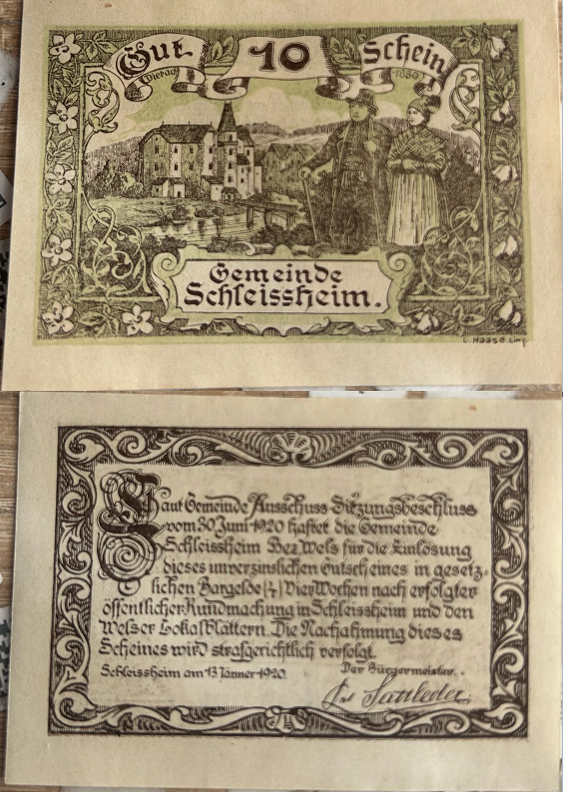 Gut 10 Schein
Dietach 1850
Gemeinde
Schleissheim.
L. Haase. Linz.
Laut Gemeinde Ausschuss-Sitzungsbeschluss
vom 30 Juni 1920 haftet die Gemeinde
Schleissheim Bez Wels für die Einlösung
dieses unverzinslichen Gutscheines in gesetz-
lichen Bargelde (4) Vier Wochen nach erfolgter
öffentlicher Kundmachung in Schleissheim und den
Welser Lokalblättern. Die Nachahmung dieses
Scheines wird strafgerichtlich verfolgt.
Schleissheim am 13 Jänner 1920. Der Bürgermeister.
Sattleder